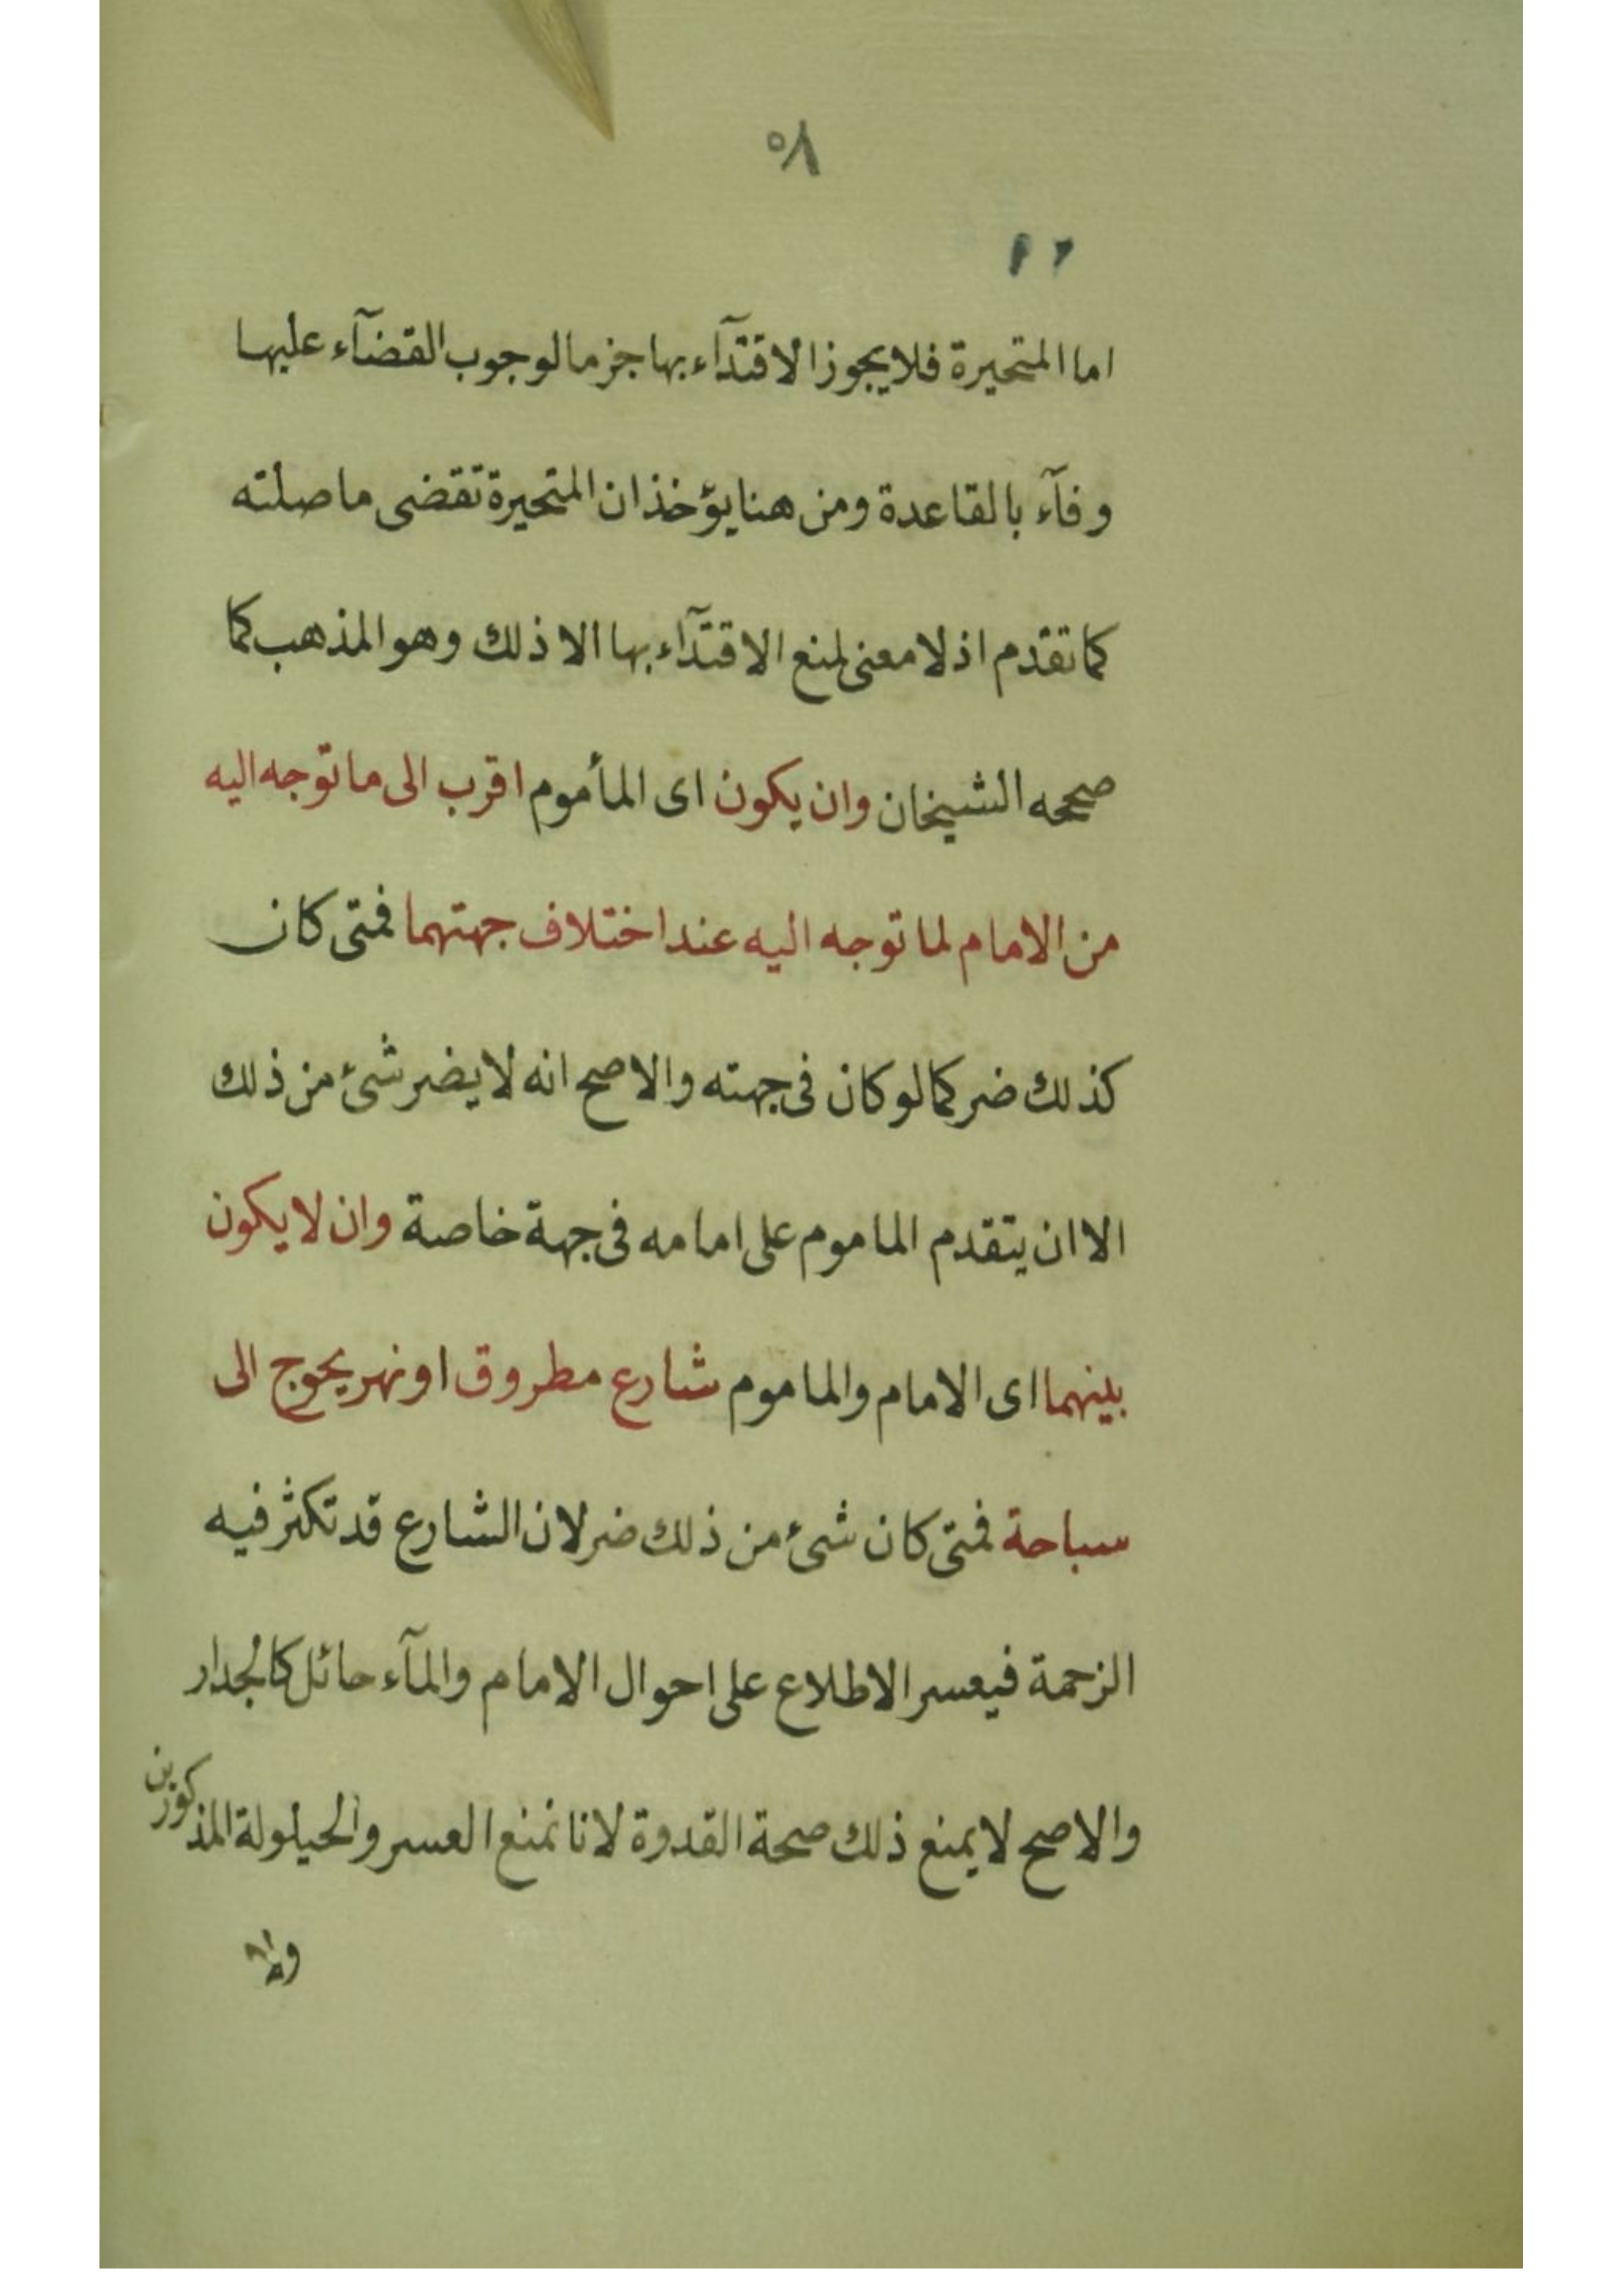 ٥٨
اما المتحيرة فلا يجوز الاقتدآء بها جزما لوجوب القضآء عليها
وفآء بالقاعدة ومن هنا يؤخذ ان المتحيرة تقضى ما صلته
كما تقدم اذ لا معنى لمنع الاقتدآء بها الا ذلك وهو المذهب كما
صححه الشيخان وان يكون اى المأموم اقرب الى ما توجه اليه
من الامام لما توجه اليه عند اختلاف جهتهما فمتى كان
كذلك ضر كما لو كان فى جهته والاصح انه لا يضر شئ من ذلك
الا ان يتقدم الماموم على امامه فى جهة خاصة وان لا يكون
بينهما اى الامام والماموم شارع مطروق او نهر يحوج الى
سباحة فمتى كان شئ من ذلك ضر لان الشارع قد تكثر فيه
الزحمة فيعسر الاطلاع على احوال الامام والمآء حائل كالجدار
والاصح لا يمنع ذلك صحة القدوة لانا نمنع العسر والحيلولة المذكورين